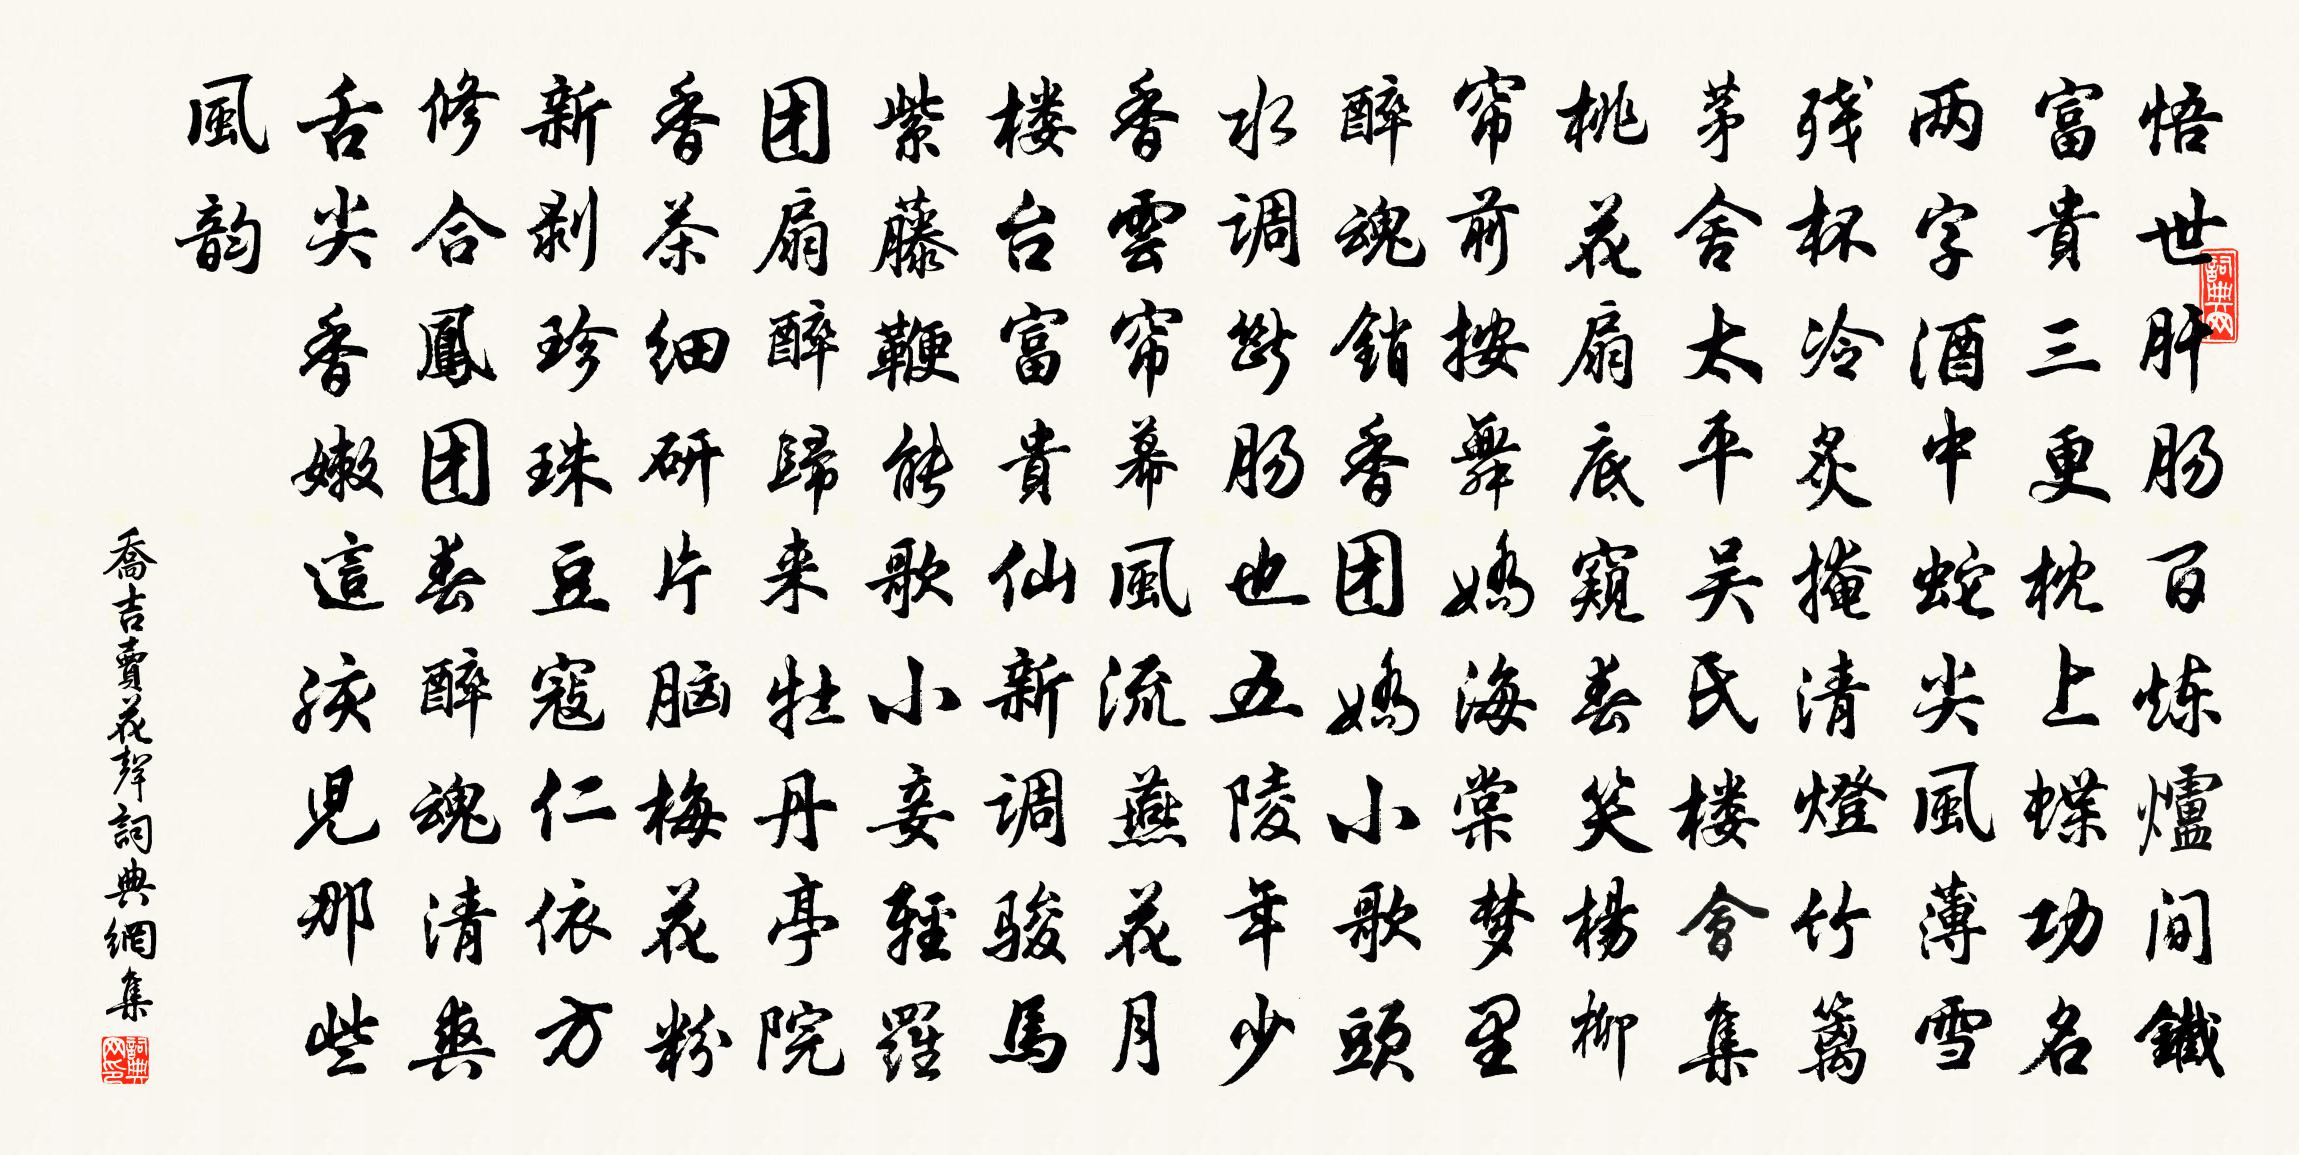 悟世肝肠百炼爐间鐵
富貴三更枕上蝶功名
两字酒中蛇尖風薄雪
残杯冷炙掩清燈竹篱
茅舍太平吴氏楼會集
桃花扇底窺春笑楊柳
帘前按舞嬌海棠梦里
醉魂銷香团嬌小歌頭
水调斷肠也五陵年少
香雲帘幕風流燕花月
楼台富貴仙新调骏馬
紫藤鞭能歌小妾輕羅
团扇醉歸来牡丹亭院
香茶细研片脑梅花粉
新剥珍珠豆寇仁依方
修合鳳团春醉魂清爽
舌尖香嫩這孩児那些
風韵
喬吉賣花聲詞典網集
詞典网
詞典网印